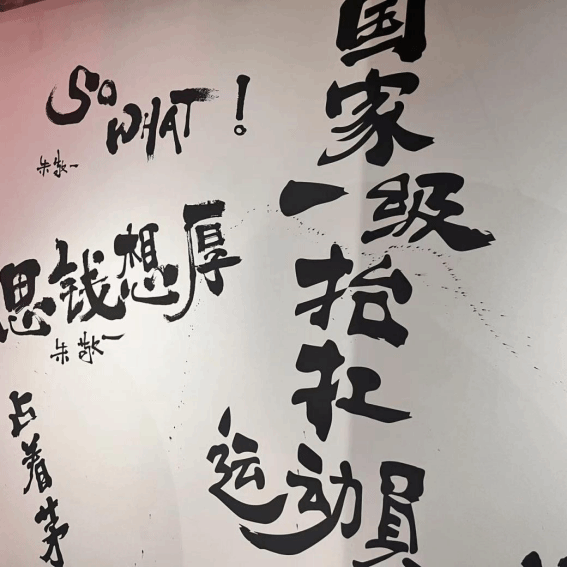 SO
WHAT!
朱敬一
思钱想厚
朱敬一
占着茅
国家
一级
抬
扛
运动員